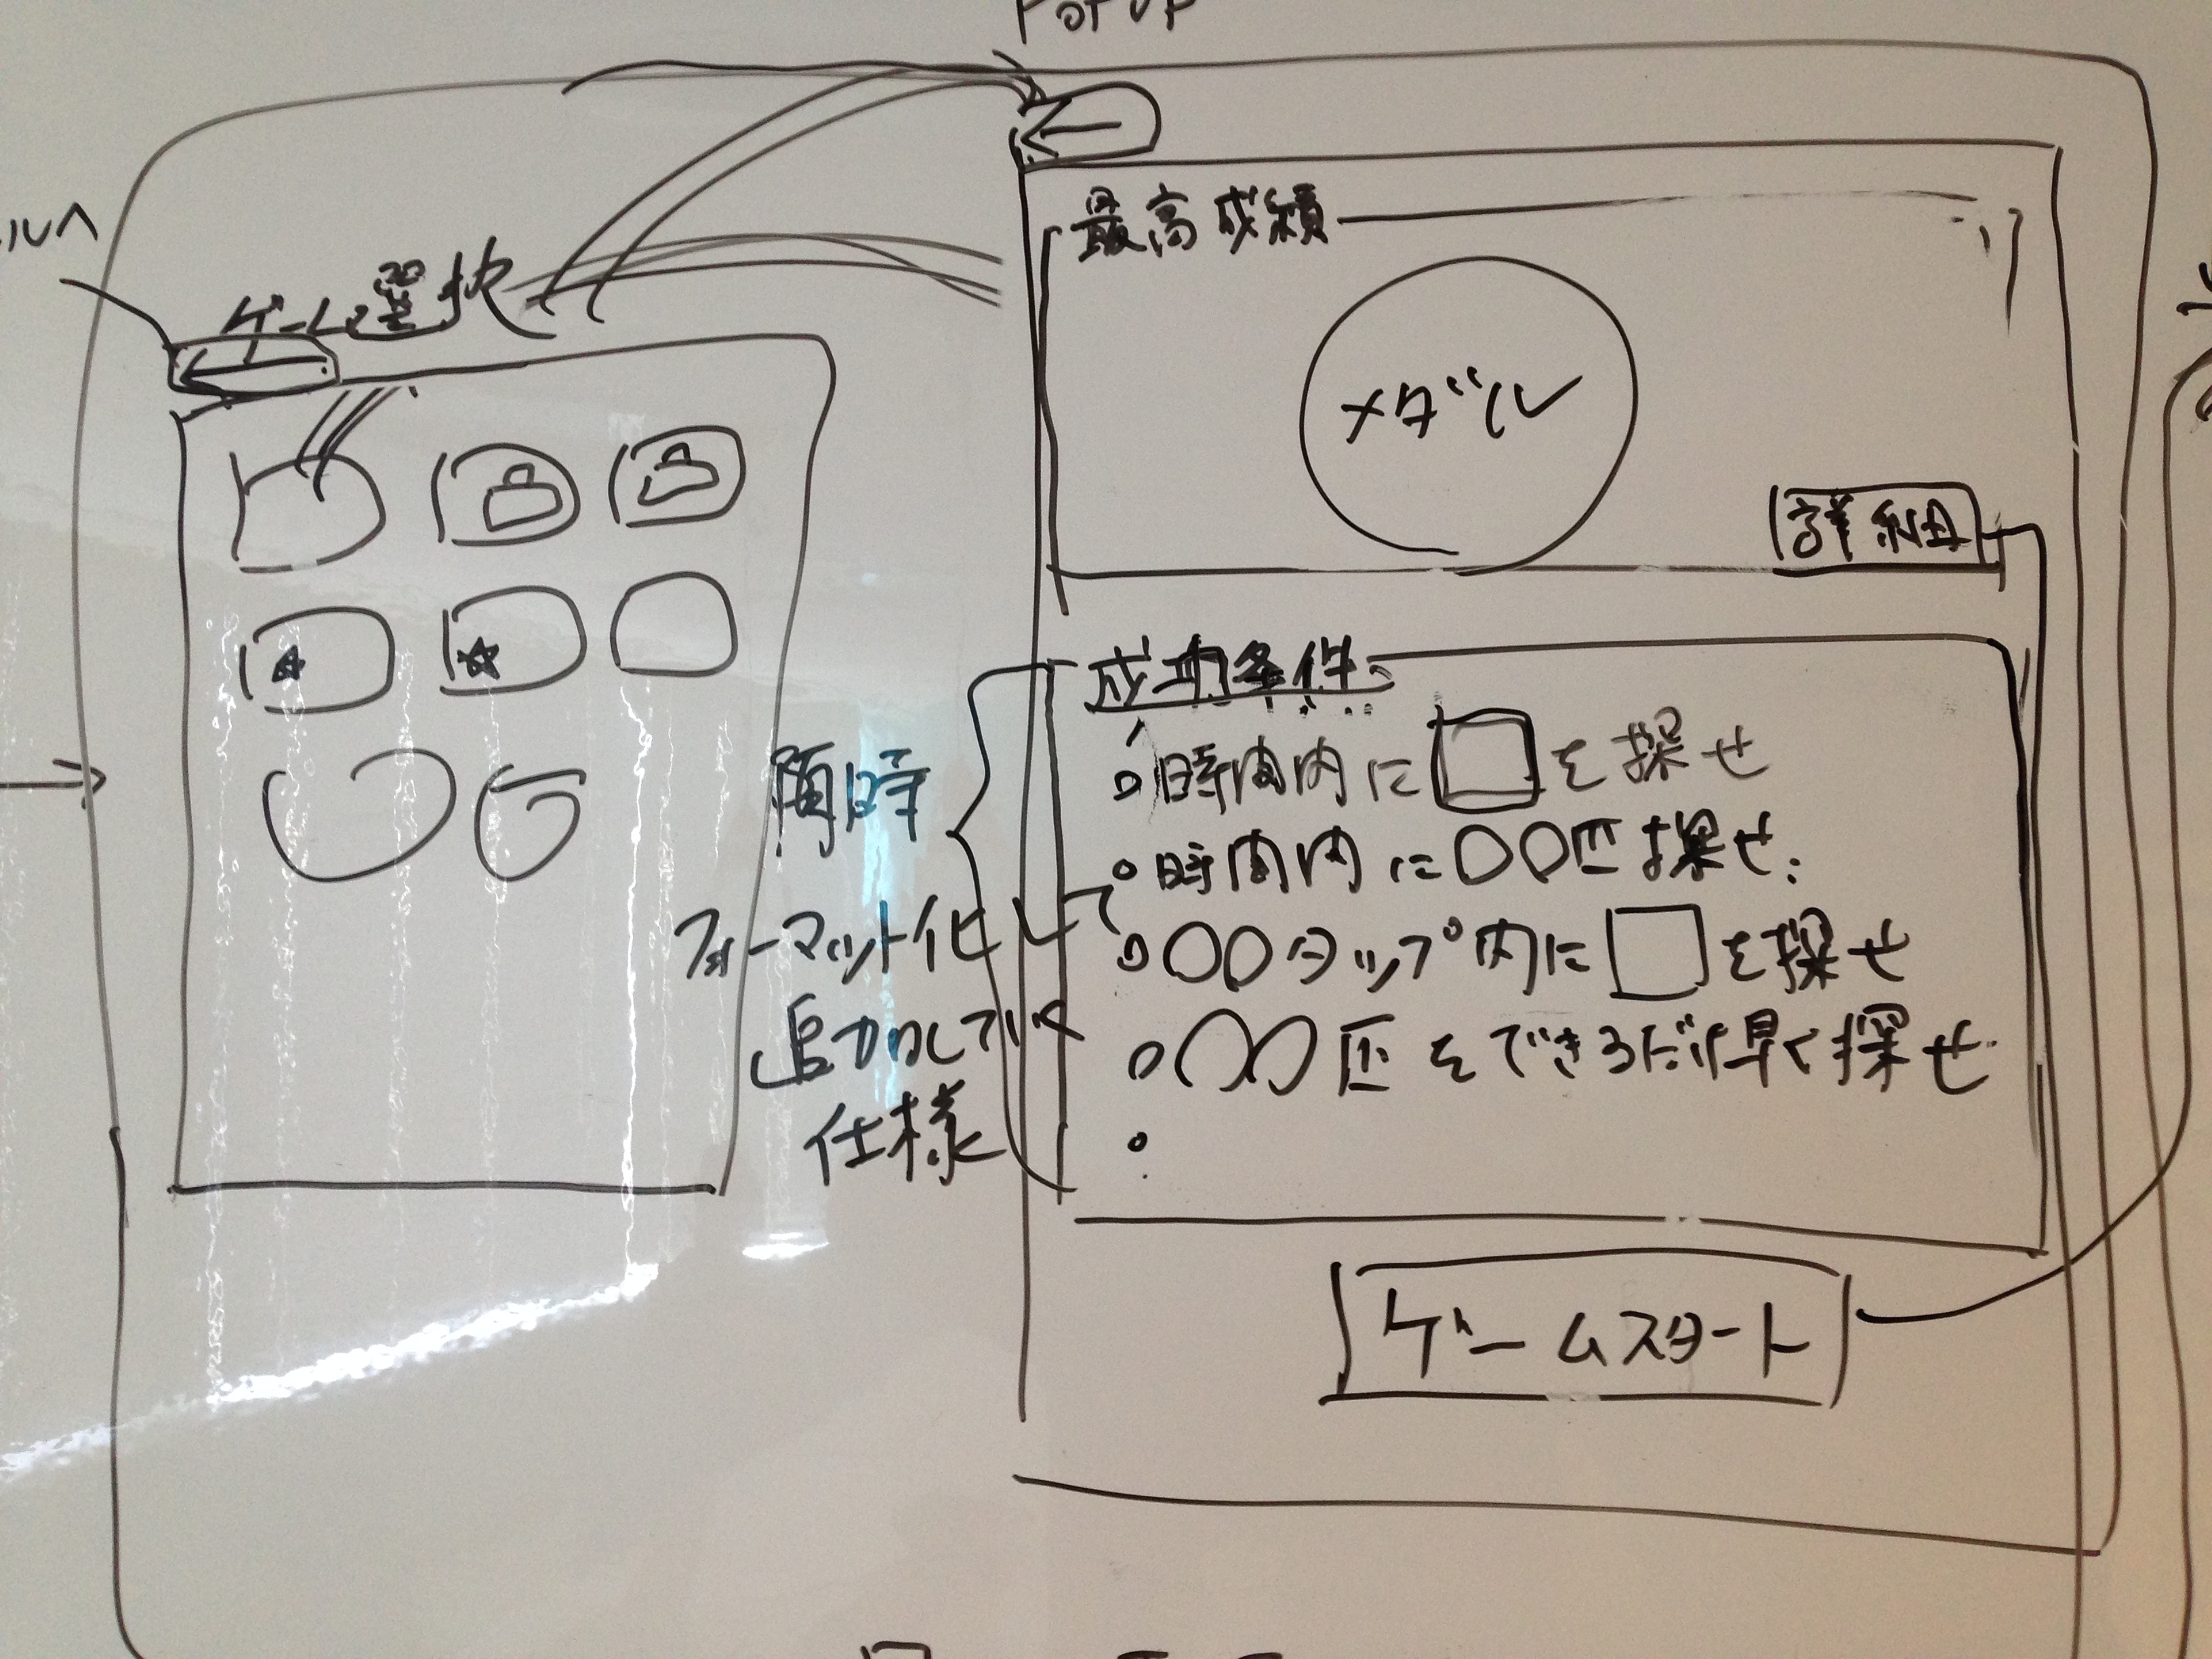 POPUP
ルへ
ゲーム選択
最高成績
メダル
詳細
成功条件
時間内に□を探せ
時間内に○○匹探せ.
○○タップ内に□を探せ
○○匹をできるだけ早く探せ.
随時
フォーマット化して
追加していく
仕様
ゲームスタート